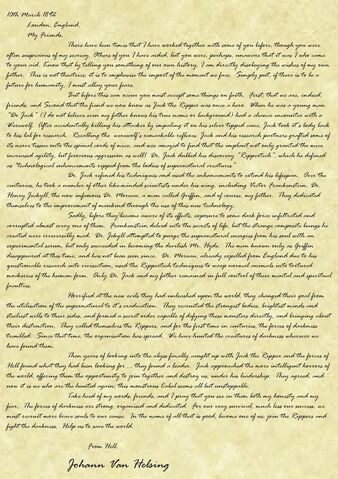 10th March 1892
London, England
My Friends,
There have been times that I have worked together with some of you before, though you were
often suspicious of my secrecy. Others of you I have aided, but you were, perhaps, unaware that it was I who came
to your aid. Know that by telling you something of our history, I am directly disobeying the wishes of my own
father. This is not theatrics; it is to emphasise the import of the moment we face. Simply put, if there is to be a
future for humanity, I must allay your fears.
But before this can occur you must accept some things on faith. First, that we are, indeed,
friends; and Second that the fiend we now know as Jack the Ripper was once a hero. When he was a young man
"Dr. Jack" (I do not believe even my father knows his true name or background) had a chance encounter with a
Werewolf. After accidentally killing his attacker by impaling it on his silver tipped cane, Jack took it's body back
to his lab for research. Recalling the werewolf's remarkable reflexes, Jack and his research partners grafted some of
its nerve tissue onto the spinal cords of mice, and was amazed to find that the implant not only granted the mice
increased agility, but ferocious aggression as well! Dr. Jack dubbed his discovery "Rippertech", which he defined
as "technological enhancements ripped from the bodies of supernatural creatures".
Dr. Jack refined his techniques and used the enhancements to extend his lifespan. Over the
centuries, he took a number of other like-minded scientists under his wing, including Victor Frankenstein, Dr.
Henry Jeckyll, the now infamous Dr. Moreau, a man called Griffin, and of course, my father. They dedicated
themselves to the improvement of mankind through the use of this new technology.
Sadly, before they became aware of its effects, exposure to some dark force infiltrated and
corrupted almost every one of them. Frankenstein delved into the secrets of life, but the strange composite beings he
created were irreversibly mad. Dr. Jekyll attempted to purge the supernatural energies from his soul with an
experimental serum, but only succeeded in becoming the devilish Mr. Hyde. The man known only as Griffin
disappeared at this time, and has not been seen since. Dr. Moreau, already expelled from England due to his
questionable research into vivisection, used the Rippertech techniques to warp normal animals into tortured
mockeries of the human form. Only Dr. Jack and my father remained in full control of their mental and spiritual
faculties.
Horrified at the new evils they had unleashed upon the world, they changed their goal from
the utilisation of the supernatural to it's eradication. They recruited the strongest bodies, brightest minds and
stoutest wills to their sides, and formed a secret order capable of defying these monsters directly, and bringing about
their destruction. They called themselves the Rippers, and for the first time in centuries, the forces of darkness
trembled. Since that time, the organisation has spread. We have hunted the creatures of darkness wherever we
have found them.
Then years of looking into the abyss finally caught up with Jack the Ripper and the forces of
Hell found what they had been looking for ... they found a leader. Jack approached the more intelligent horrors of
the world, offering them the opportunity to join together and destroy us, under his leadership. They agreed, and
now it is we who are the hunted again; this monstrous Cabal seems all but unstoppable.
Take heed of my words, friends, and I pray that you see in them both my honesty and my
fear. The forces of darkness are strong, organised and dedicated. For our very survival, much less our success, we
must recruit more brave souls to our cause. In the name of all that is good, become one of us; join the Rippers and
fight the darkness. Help us to save the world.
From Hell,
Johann Van Helsing